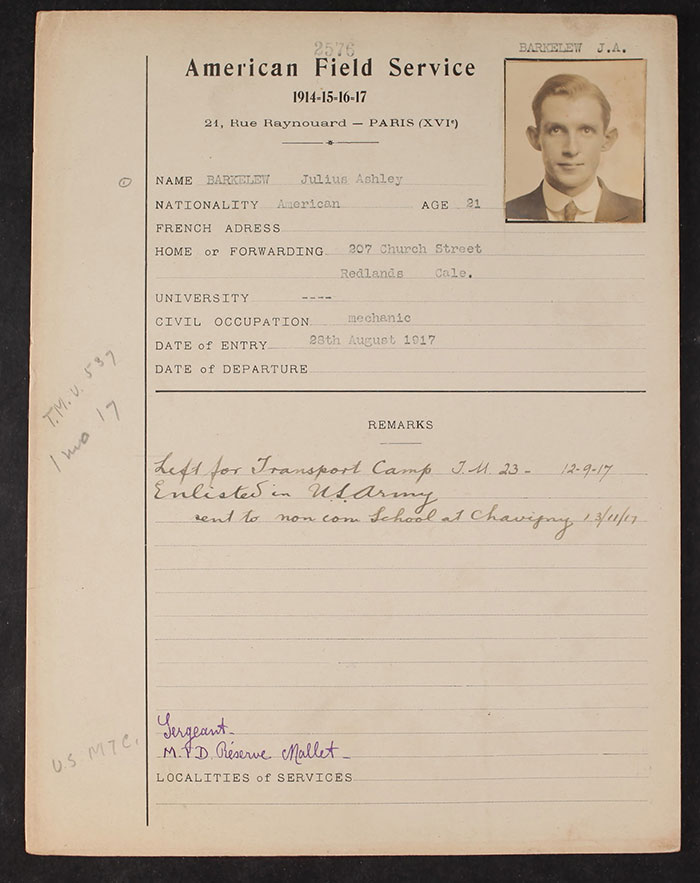 2576
BARKELEW J.A.
American Field Service
1914-15-16-17
21, Rue Raynouard — PARIS (XVIe)
NAME BARKELEW Julius Ashley
NATIONALITY American AGE 21
FRENCH ADRESS
HOME or FORWARDING 207 Church Street
Redlands Cale.
UNIVERSITY ----
CIVIL OCCUPATION mechanic
DATE of ENTRY 28th August 1917
DATE of DEPARTURE
T.M.U. 537
1 mo 17
REMARKS
Left for Transport Camp T.M. 23 - 12-9-17
Enlisted in U.S. Army
sent to non com School at Chavigny 13/11/17
Sergeant -
Réserve Mallet -
U.S. M T C.
LOCALITIES of SERVICES